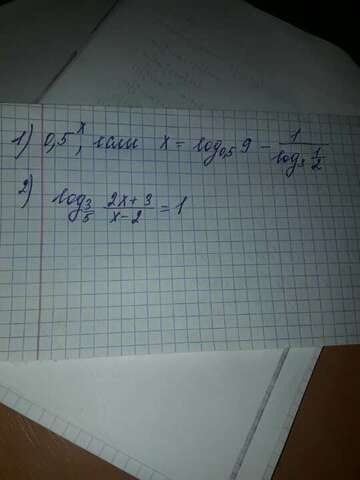 1) 0,5^x, если x = log_{0,5} 9 - \frac{1}{log_3 \frac{1}{2}}
2) log_{\frac{3}{5}} \frac{2x+3}{x-2} = 1